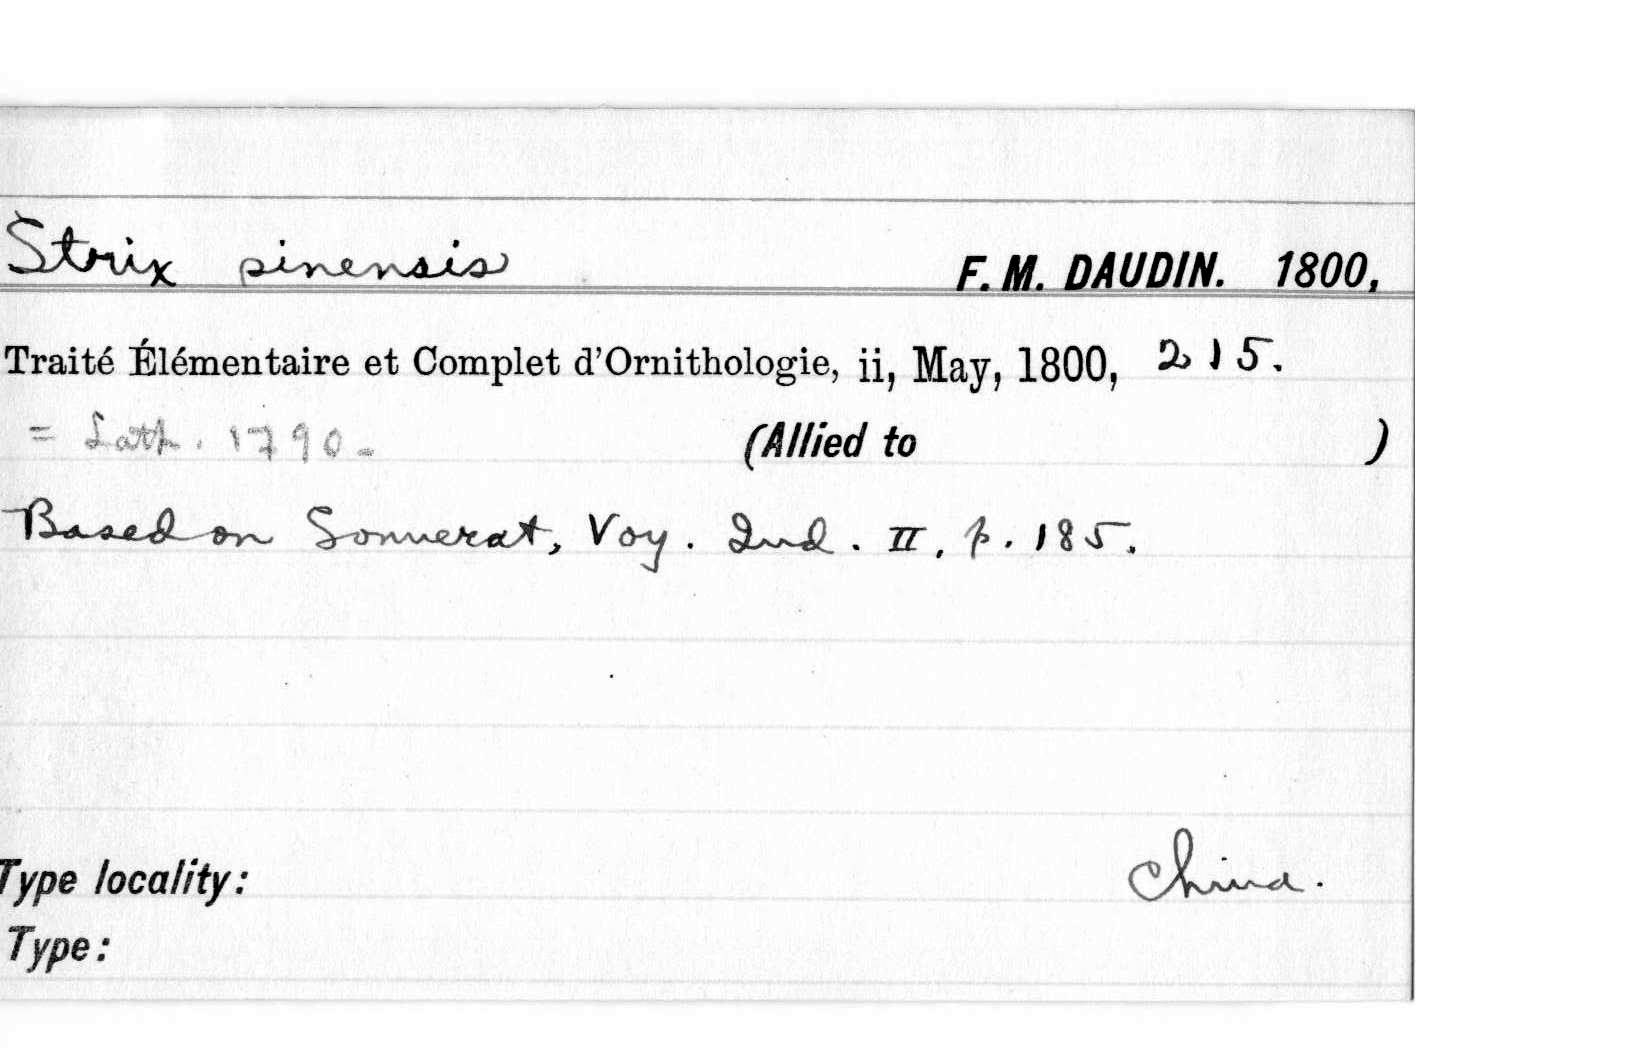 Strix sinensis F. M. DAUDIN. 1800,
Traité Élémentaire et Complet d'Ornithologie, ii, May, 1800, 215.
= Lath. 1790- (Allied to )
Based on Sonnerat, Voy. Ind. II, p. 185.
Type locality: China.
Type: